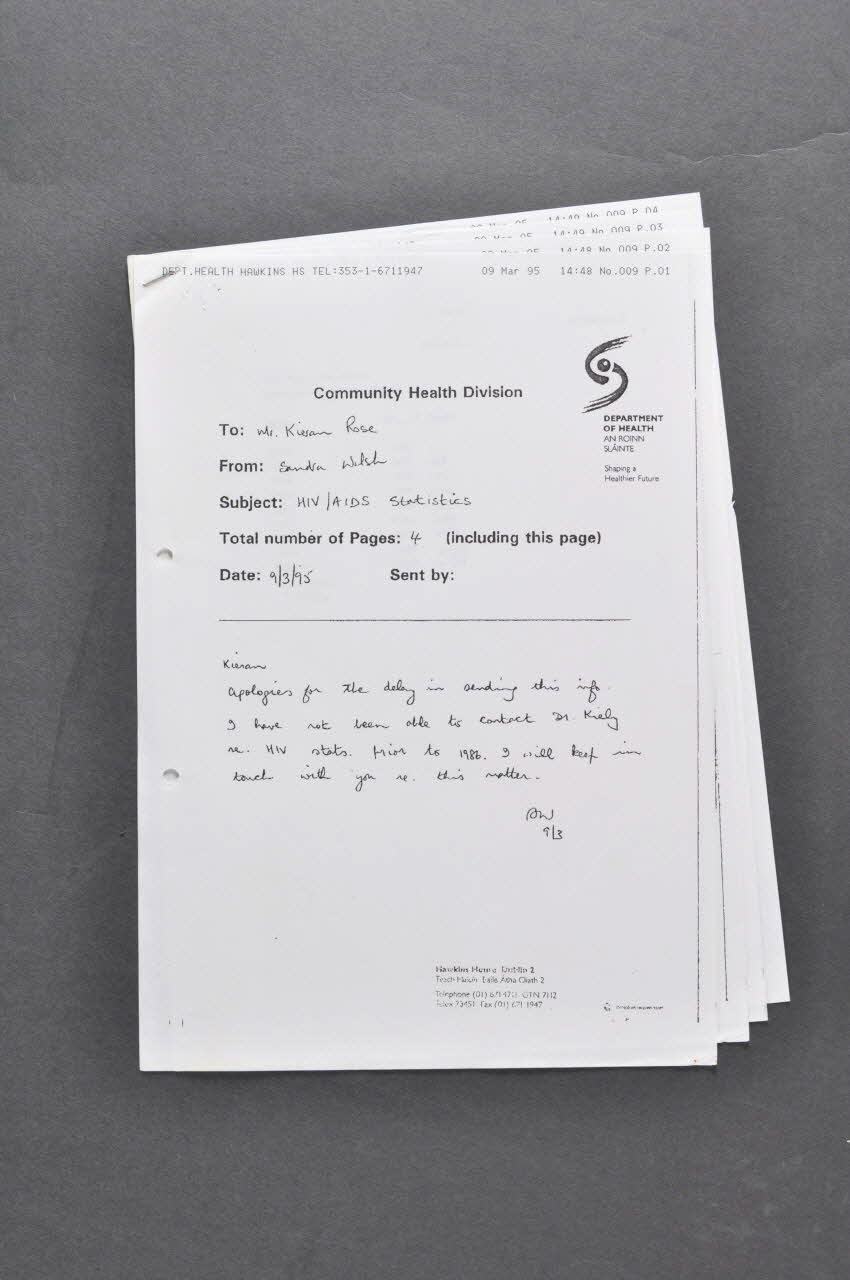 14:49 No.009 P.04
14:49 No.009 P.03
14:48 No.009 P.02
DEPT.HEALTH HAWKINS HS TEL:353-1-6711947 09 Mar 95 14:48 No.009 P.01
Community Health Division
DEPARTMENT
OF HEALTH
AN ROINN
SLÁINTE
Shaping a
Healthier Future
To: Mr. Kieran Rose
From: Sandra Walsh
Subject: HIV/AIDS Statistics
Total number of Pages: 4 (including this page)
Date: 9/3/95 Sent by:
Kieran
Apologies for the delay in sending this info.
I have not been able to contact Dr. Kiely
re. HIV stats. prior to 1986. I will keep in
touch with you re. this matter.
SW
9/3
Hawkins House Dublin 2
Baile Átha Cliath 2
Telephone (01) GTN 7112
Telex 73451 Fax (01) 671 1947